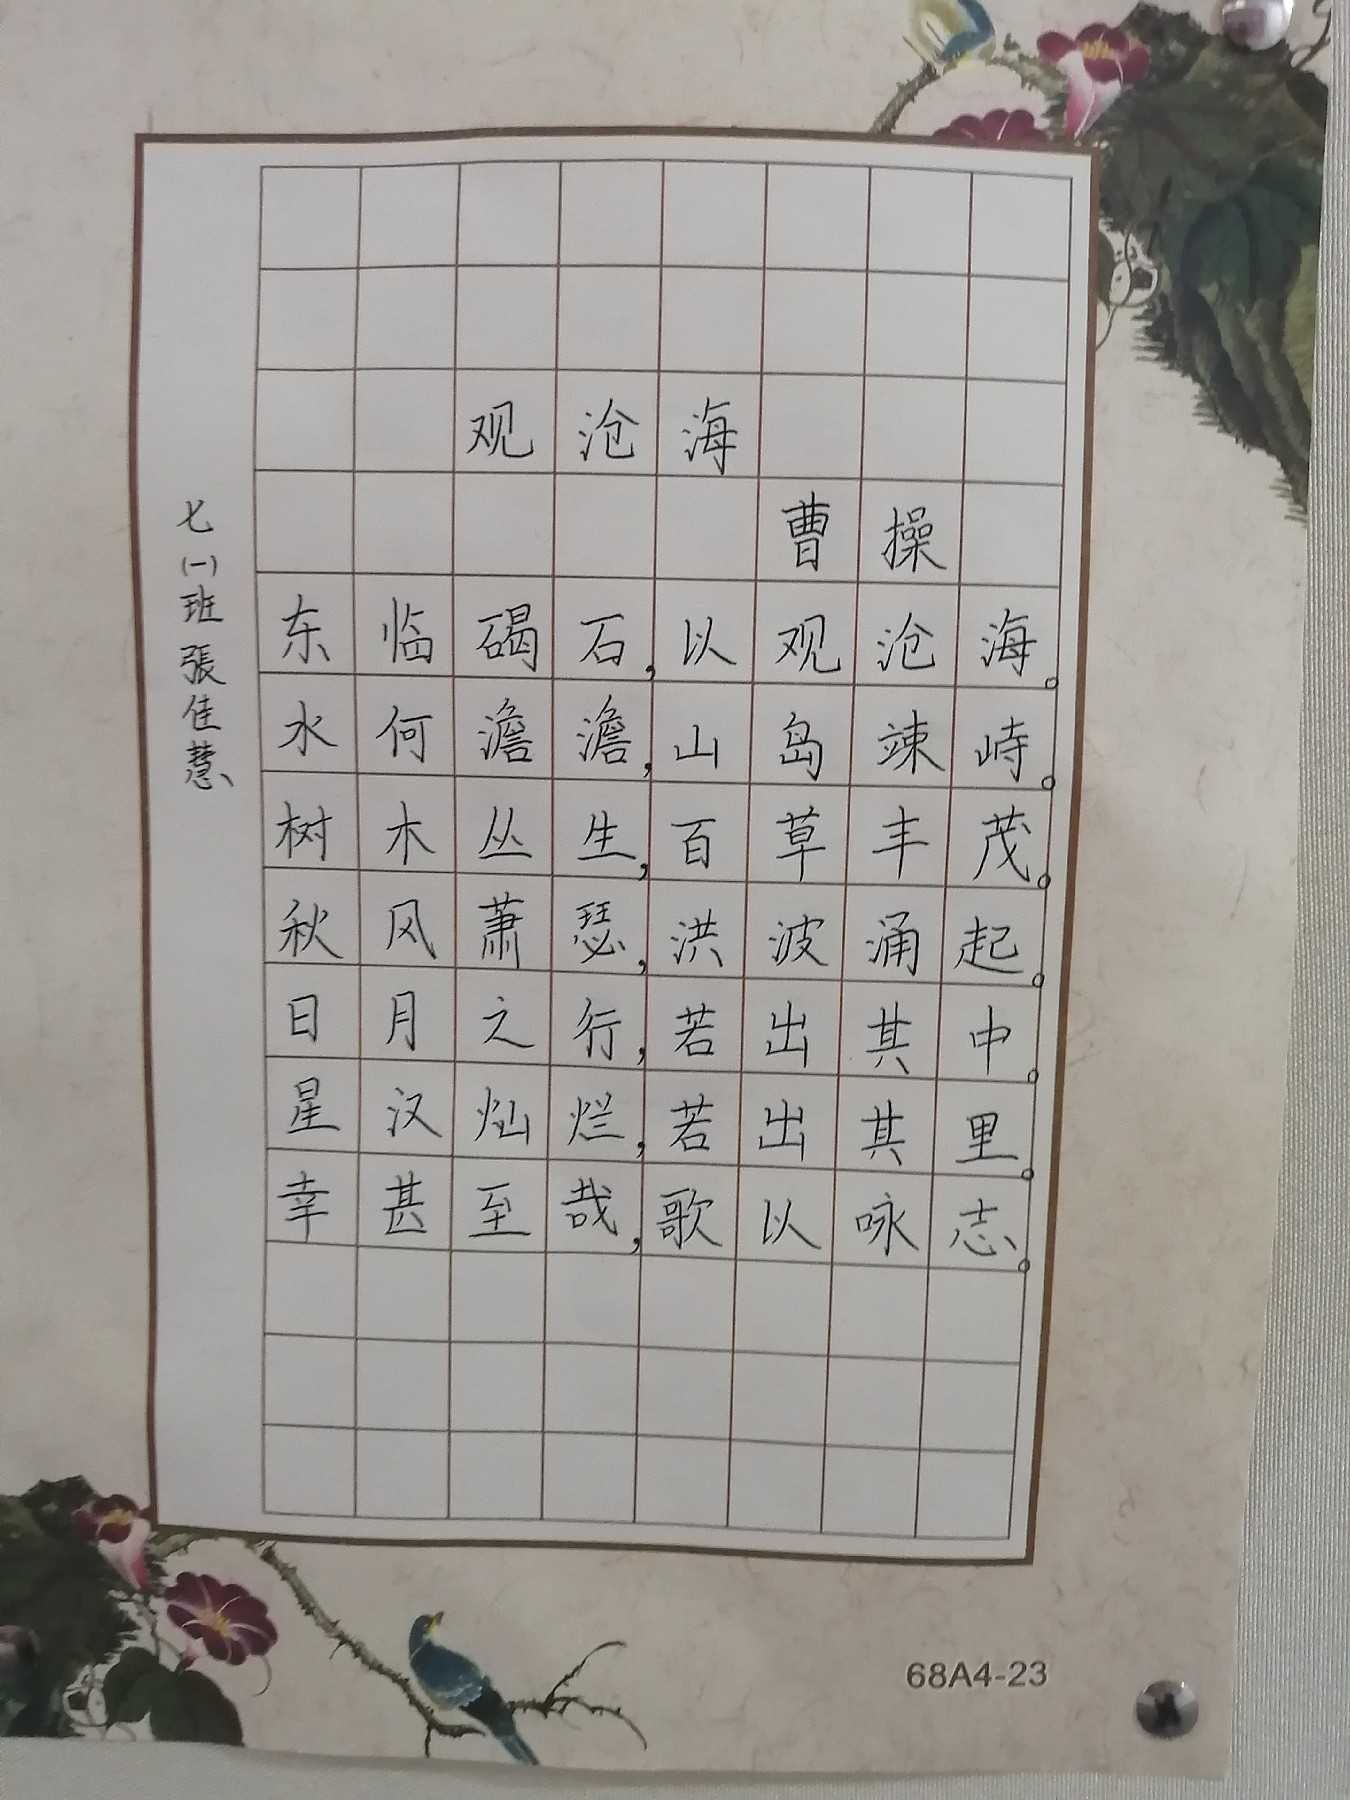 观沧海
曹操
东临碣石,以观沧海。
水何澹澹,山岛竦峙。
树木丛生,百草丰茂。
秋风萧瑟,洪波涌起。
日月之行,若出其中。
星汉灿烂,若出其里。
幸甚至哉,歌以咏志。
七(一)班張佳慧
68A4-23